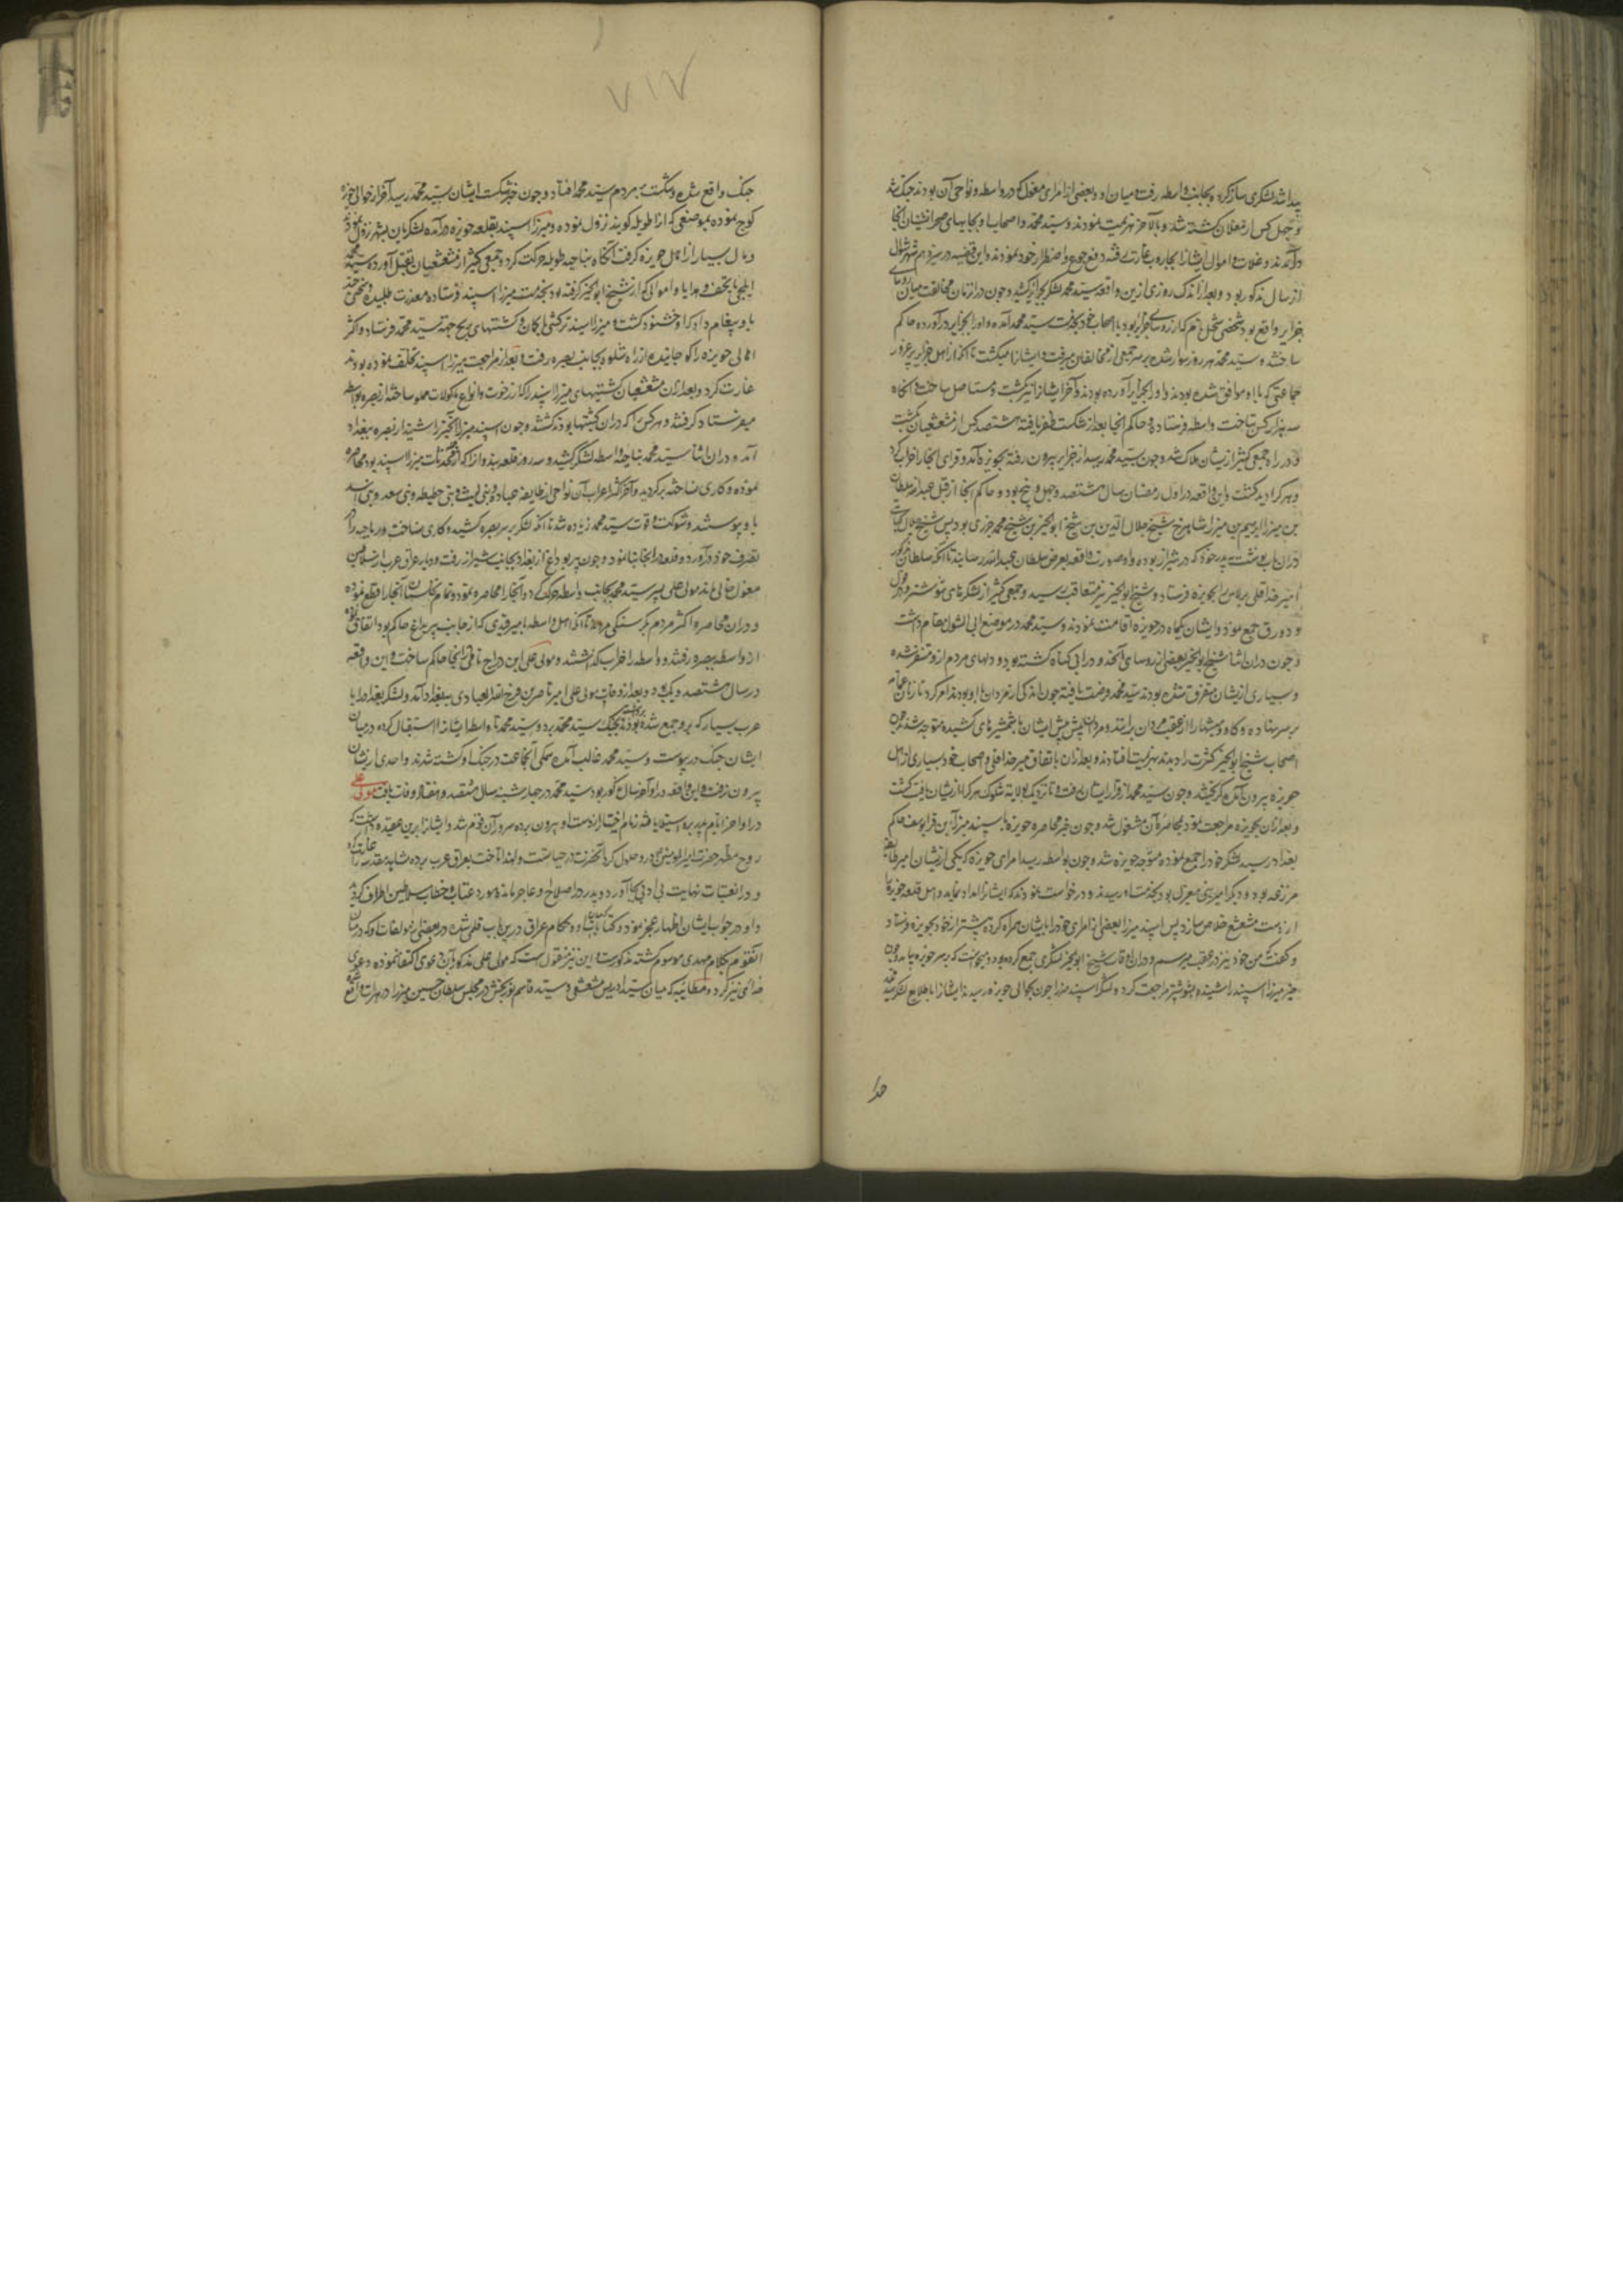 پیدا شد لشکری ساز کرده بجانب واسطه رفت و میان او و بعضی از امرای مغول که در واسطه و نواحی آن بودند جنگ شد
و چهل کس از مغلان کشته شد و بالاخر هزیمت نمودند و سید محمد و اصحاب او بجابهای صحرانشینان آنجا
درآمدند و غلات و اموال ایشان را بجاروب غارت رفته دفع جوع و اضطرار خود نمودند و این قضیه در سیزدهم شهر شوال
از سال مذکور بود و بعد از اندک روزی ازین واقعه سید محمد لشکر بجزایر کشید و چون در آن زمان مخالفت میان رؤسای
جزایر واقع بود شخصی شحل نام که از رؤسای جزایر بود با اصحاب خود بخدمت سید محمد آمده و او را بجزایر درآورده حاکم
ساختند و سید محمد هر روز سوار شده بر سر جمعی از مخالفان میرفت و ایشان را میکشت تا آنکه از اهل جزایر بر غرور
جماعتی که با او موافق شده بودند و او را بجزایر آورده بودند و آخر ایشان را نیز بکشت و مستاصل ساخت و آنگاه
سه هزار کس بتاخت واسطه فرستاد و حاکم آنجا بعد از شکست ظفر یافته هشتصد کس از مشعشعیان بکشت
و در راه جمعی کثیر از ایشان هلاک شد و چون سید محمد رسید از جزایر بیرون رفته بحویزه آمد و قرای آنجا را خراب کرد
و هر کرا دید کشت و این واقعه در اول رمضان سال هشتصد و چهل و پنج بود و حاکم آنجا از قبل عبدالله سلطان
بن میرزا ابراهیم بن میرزا شاهرخ شیخ جلال الدین بن شیخ ابوالخیر بن شیخ محمد جزری بود پس شیخ جلال
در آن باب نوشت به پدر خود که در شیراز بود و او صورت واقعه بعرض سلطان عبدالله رسانید تا آنکه سلطان مذکور
امیر خداقلی برلاس را بحویزه فرستاد و شیخ ابوالخیر نیز متعاقب رسید و جمعی کثیر از لشکریهای شوشتر و دزفول
و دورق جمع نمود و ایشان یکماه در حویزه اقامت نمودند و سید محمد در موضع ابی الشول مقام داشت
و چون در آن اثنا شیخ ابوالخیر بعضی از رؤسای آنحدود را بی گناه کشته بود و دلهای مردم ازو متنفر شده
و بسیاری ازیشان متفرق شده بودند سید محمد فرصت یافته چون اندکی از مردان با او بودند امر کرد تا زنان عمامه
بر سر نهاده و گاو و میشها را از عقب مردان براندند و مردان پیش پیش ایشان با شمشیرهای کشیده متوجه شدند چون
اصحاب شیخ ابوالخیر کثرت را دیدند بهزیمت افتادند و بعد از آن باتفاق میر خداقلی و اصحاب خود بسیاری از اهل
حویزه بیرون آمده گریختند و چون سید محمد از فرار ایشان رفت و تا نزدیک ولایت شلوک هر کرا ازیشان یافت کشت
و بعد از آن بحویزه مراجعت نمود بمحاصره آن مشغول شد و چون خبر محاصره حویزه باسپند میرزا بن قرا یوسف حاکم
بغداد رسید لشکر خود را جمع نموده متوجه حویزه شد و چون بواسطه رسید امرای حویزه که یکی ازیشان امیر
بود و دیگر امیر بخدمت او رسیدند و درخواست نمودند که ایشان را امداد نماید و اهل قلعه حویزه را
از دست مشعشع خلاص سازد پس اسپند میرزا بعضی از امرای خود را با ایشان همراه کرده پیشتر از خود بحویزه فرستاد
و گفت من خود نیز در عقب میرسم و در آن اوقات شیخ ابوالخیر لشکری جمع کرده بود و میخواست که بر سر حویزه بیاید و چون
خبر میرزا اسپند را شنید بشوشتر مراجعت کرد و لشکر اسپند میرزا چون بحوالی حویزه رسیدند ایشان را با طلایع لشکر سید محمد
جدا
۷۱۷
جنگ واقع شده و شکست بر مردم سید محمد افتاد و چون خبر شکست ایشان بسید محمد رسید آخر از حوالی حویزه
کوچ نموده بموضعی که آن را طویله گویند نزول نموده و میرزا اسپند بقلعه حویزه درآمده لشکریان بشهر نزول نمود
و مال بسیار از اهل حویزه گرفت آنگاه بناحیه طویله حرکت کرد و جمعی کثیر از مشعشعیان بقتل آورده سید محمد
ایلچی با تحف و هدایا و اموالی که از شیخ ابوالخیر گرفته بود بخدمت میرزا اسپند فرستاده معذرت طلبیده و سخنی چند
باو پیغام داد که او خشنود گشت و میرزا اسپند ترکشی با کمان و کشتیهای برنج جهت سید محمد فرستاد و اکثر
اهالی حویزه را کوچانیده از راه شلوه بجانب بصره رفت و بعد از مراجعت میرزا اسپند تخلف نموده بودند
غارت کرد و بعد از آن مشعشعیان کشتیهای میرزا اسپند را که از رخوت و انواع ماکولات مملو ساخته از بصره بواسط
میفرستاد گرفتند و هر کس را که در آن کشتیها بودند کشتند و چون اسپند میرزا این خبر را شنید از بصره ببغداد
آمد و در آن اثنا سید محمد بناحیه واسطه لشکر کشید و سه روز قلعه بندوان را که از مستحدثات میرزا اسپند بود محاصره
نموده و کاری نساخته برگردید و آخر اکثر اعراب آن نواحی از طایفه عباده و بنی لیث و بنی حطیطه و بنی سعد و بنی اسد
باو پیوستند و شوکت و قوت سید محمد زیاده شد تا آنکه لشکر بر سر بصره کشید و کاری نساخت و رماحیه را
بتصرف خود درآورد و قلعه در آنجا بنا نمود و چون پیر بوداغ از بغداد بجانب شیراز رفت و دیار عراق عرب از سلاطین
مغول خالی ماند مولی علی پسر سید محمد بجانب واسطه حرکت کرد و آنجا را محاصره نمود و تمام نخلستان آنجا را قطع نموده
و در آن محاصره اکثر مردم بگرسنگی مردند تا آنکه اهل واسطه با میر قبدی که از جانب پیر بداغ حاکم بود اتفاق نموده
از واسطه ببصره رفتند و واسطه را خراب گذاشتند و مولی علی ابن دراج نامی را در آنجا حاکم ساخت و این واقعه
در سال هشتصد و بود و بعد از وفات مولی علی امیر ناصر بن فرج الله العبادی ببغداد آمد و لشکر بغداد را با
عرب بسیار که برو جمع شده بودند بجنگ سید محمد برد و سید محمد تا واسط ایشان را استقبال کرده در میان
ایشان جنگ در پیوست و سید محمد غالب آمده همگی آنجماعت در جنگ او کشته شدند و احدی ازیشان
بیرون نرفت و این واقعه در اواخر سال مذکور بود سید محمد در چهارشنبه سال هشتصد و هفتاد وفات یافت مولی علی
در اواخر ایام پدر برو استیلا یافته زمام اختیار از دست او بیرون برده سردار آن قوم شد و ایشان را برین عقیده داشت که
روح مطهر حضرت امیرالمؤمنین در وی حلول کرده و آنحضرت در حیاتست و لهذا تاخت بعراق عرب برده مشاهد مقدسه را غارت کرد
و در آن عتبات نهایت بی ادبی بجا آورد و پدر در اصلاح او عاجز مانده مورد عتاب و خطاب سلاطین اطراف گردید
و او در جواب ایشان اظهار عجز نمود و کتابات او و حکام عراق درین باب قلمی شده در بعضی از مؤلفات او که در میان
آنقوم بکلام مهدی موسوم گشته مذکورست و این نیز منقول است که مولی علی مذکور بآن دعوی اکتفا ننموده دعوی
خدائی نیز کرد و مطایبه که میان سید ادریس مشعشی و سید قاسم نوربخش در مجلس سلطان حسین میرزا در هرات واقع